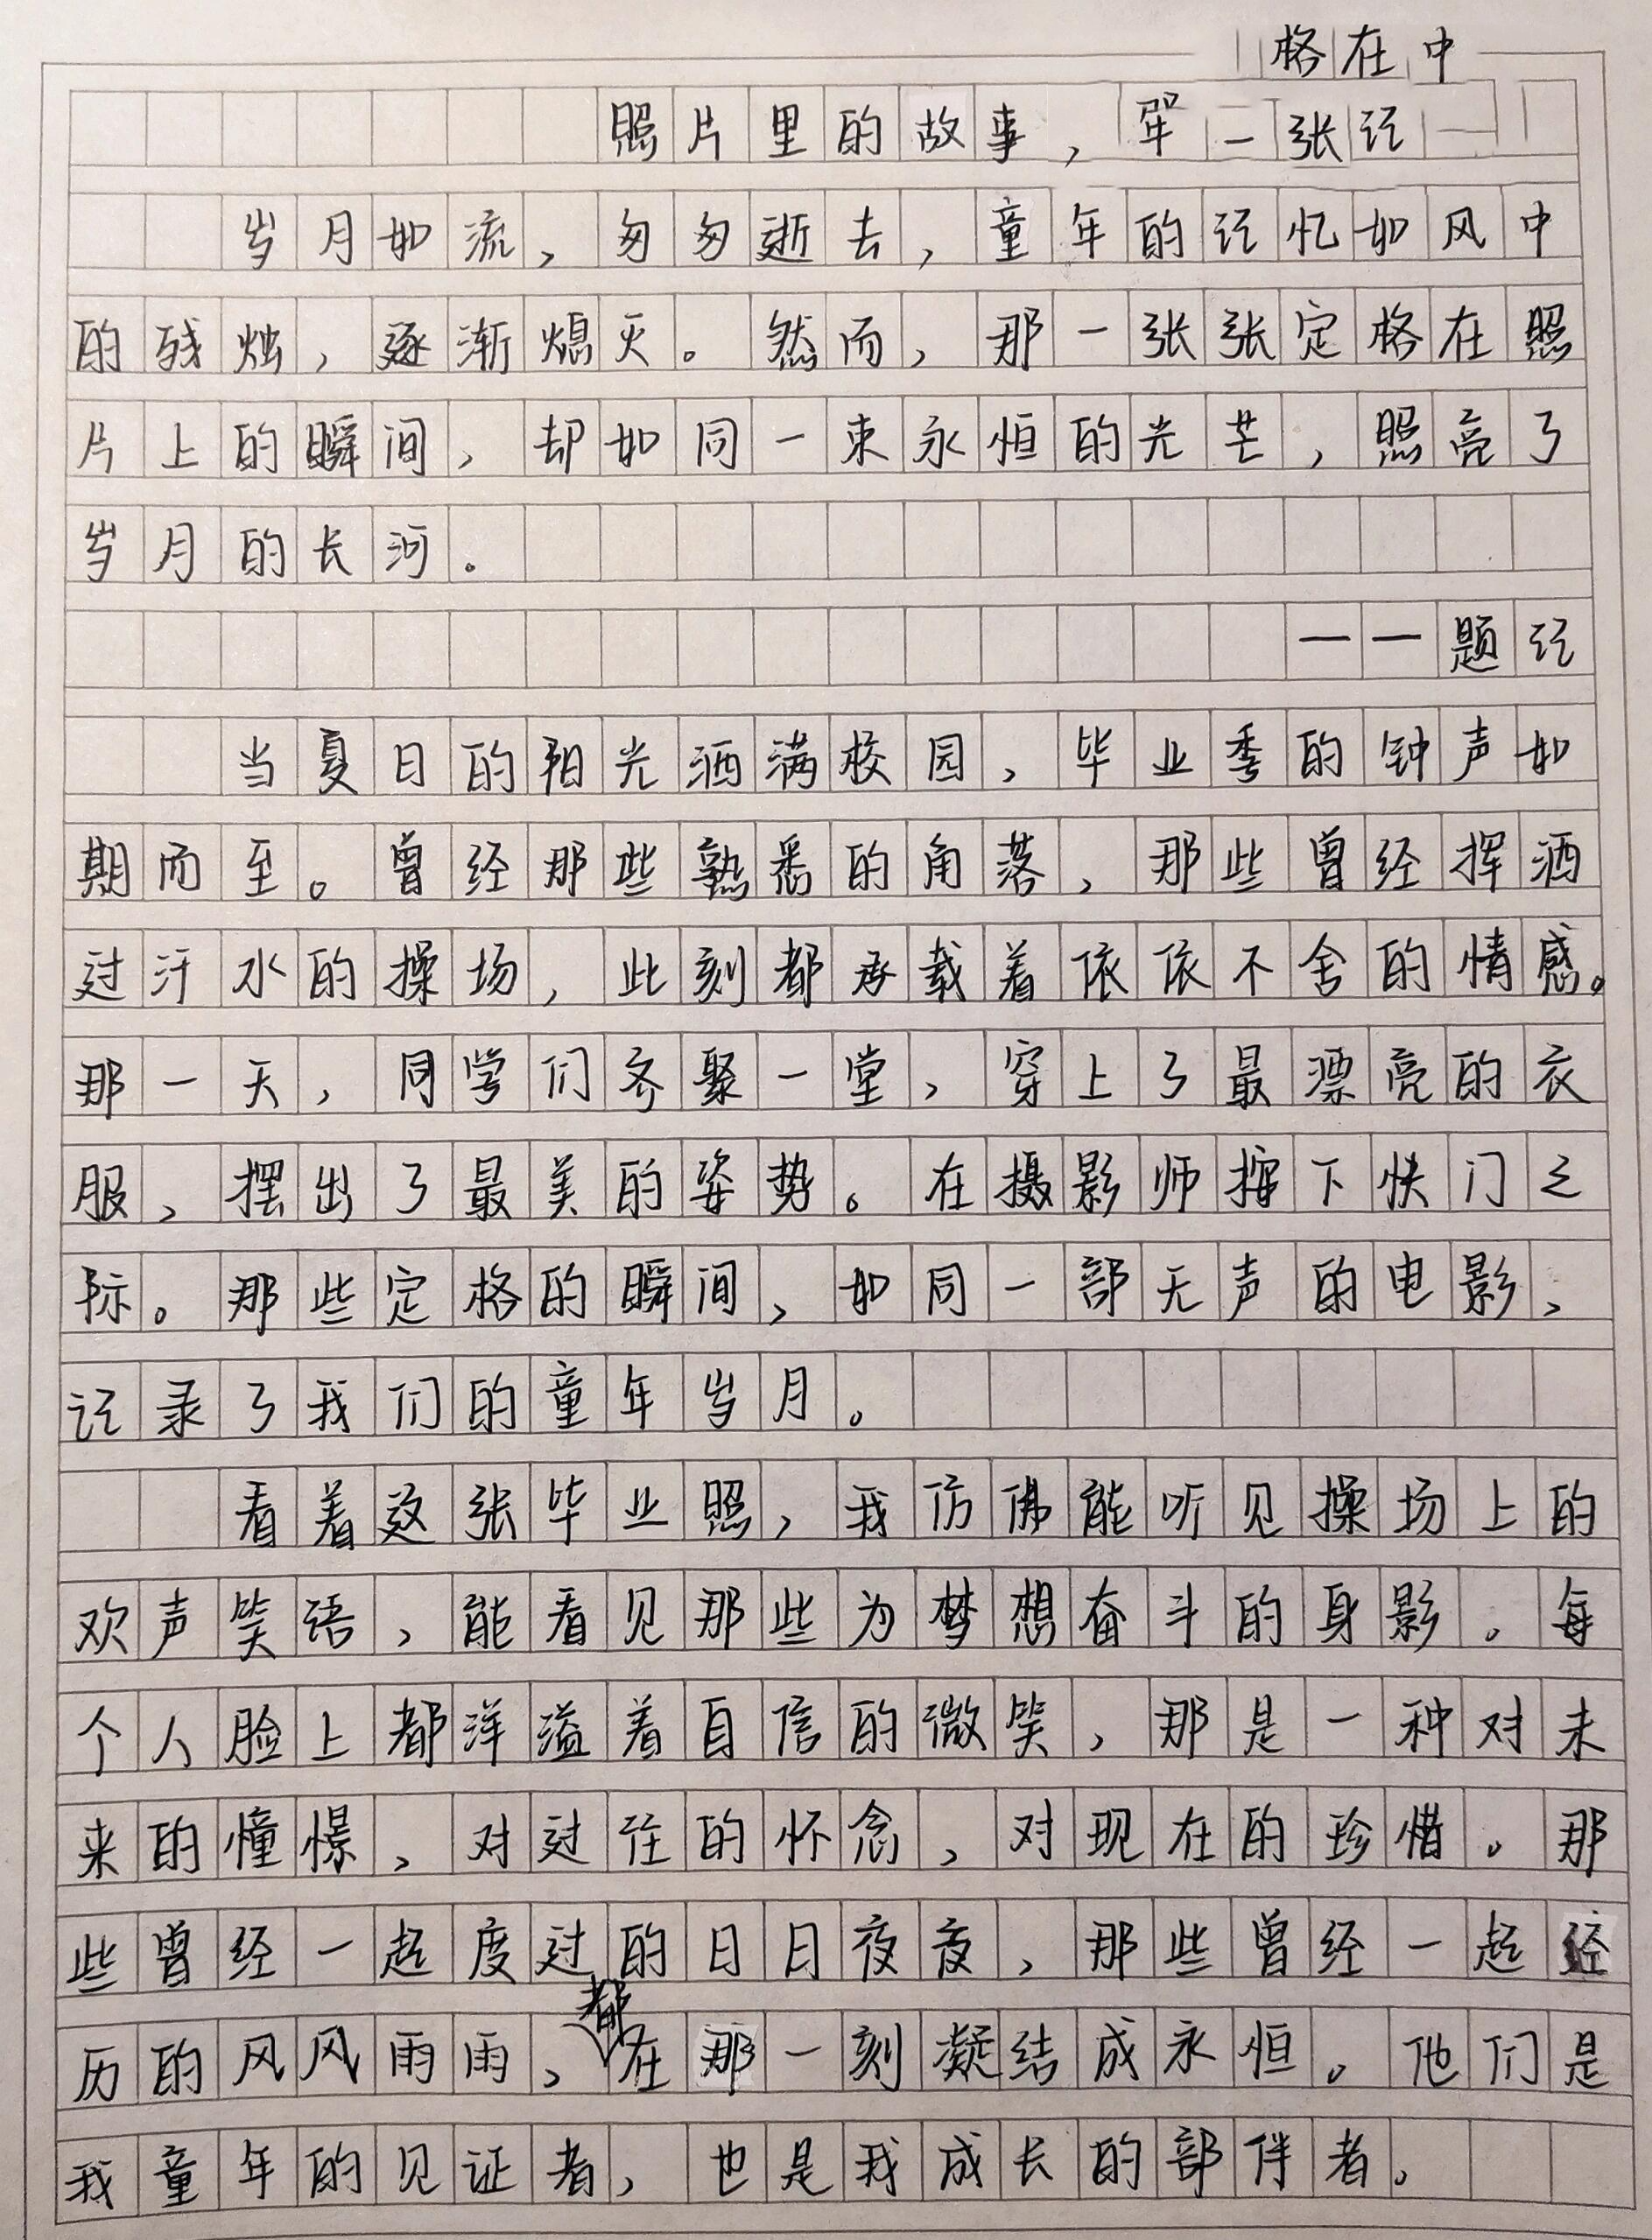 格在中
照片里的故事，
一张记
岁月如流，匆匆逝去，童年的记忆如风中
的残烛，逐渐熄灭。然而，那一张张定格在照
片上的瞬间，却如同一束永恒的光芒，照亮了
岁月的长河。
——题记
当夏日的阳光洒满校园，毕业季的钟声如
期而至。曾经那些熟悉的角落，那些曾经挥洒
过汗水的操场，此刻都承载着依依不舍的情感。
那一天，同学们齐聚一堂，穿上了最漂亮的衣
服，摆出了最美的姿势。在摄影师按下快门之
际。那些定格的瞬间，如同一部无声的电影，
记录了我们的童年岁月。
看着这张毕业照，我仿佛能听见操场上的
欢声笑语，能看见那些为梦想奋斗的身影。每
个人脸上都洋溢着自信的微笑，那是一种对未
来的憧憬，对过往的怀念，对现在的珍惜。那
些曾经一起度过的日日夜夜，那些曾经一起经
历的风风雨雨，都在那一刻凝结成永恒。他们是
我童年的见证者，也是我成长的部伴者。